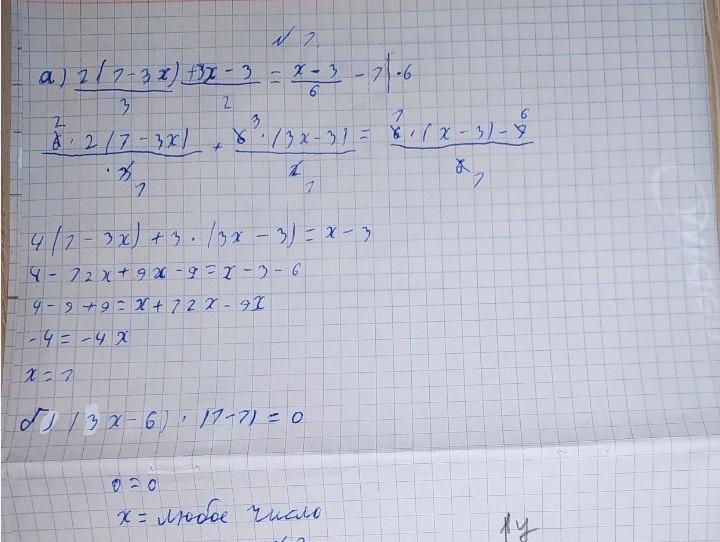 № 1.
а) 2(1-3x)/3 + 3x-3/2 = x-3/6 - 1 | ·6
6²·2(1-3x)/3₁ + 6³·(3x-3)/2₁ = 6¹·(x-3)-1⁶/6₁
4(1-3x)+3·(3x-3)=x-3
4-12x+9x-9=x-3-6
4-9+9=x+12x-9x
-4=-4x
x=1
б) (3x-6)·(1-1)=0
0=0
x=любое число